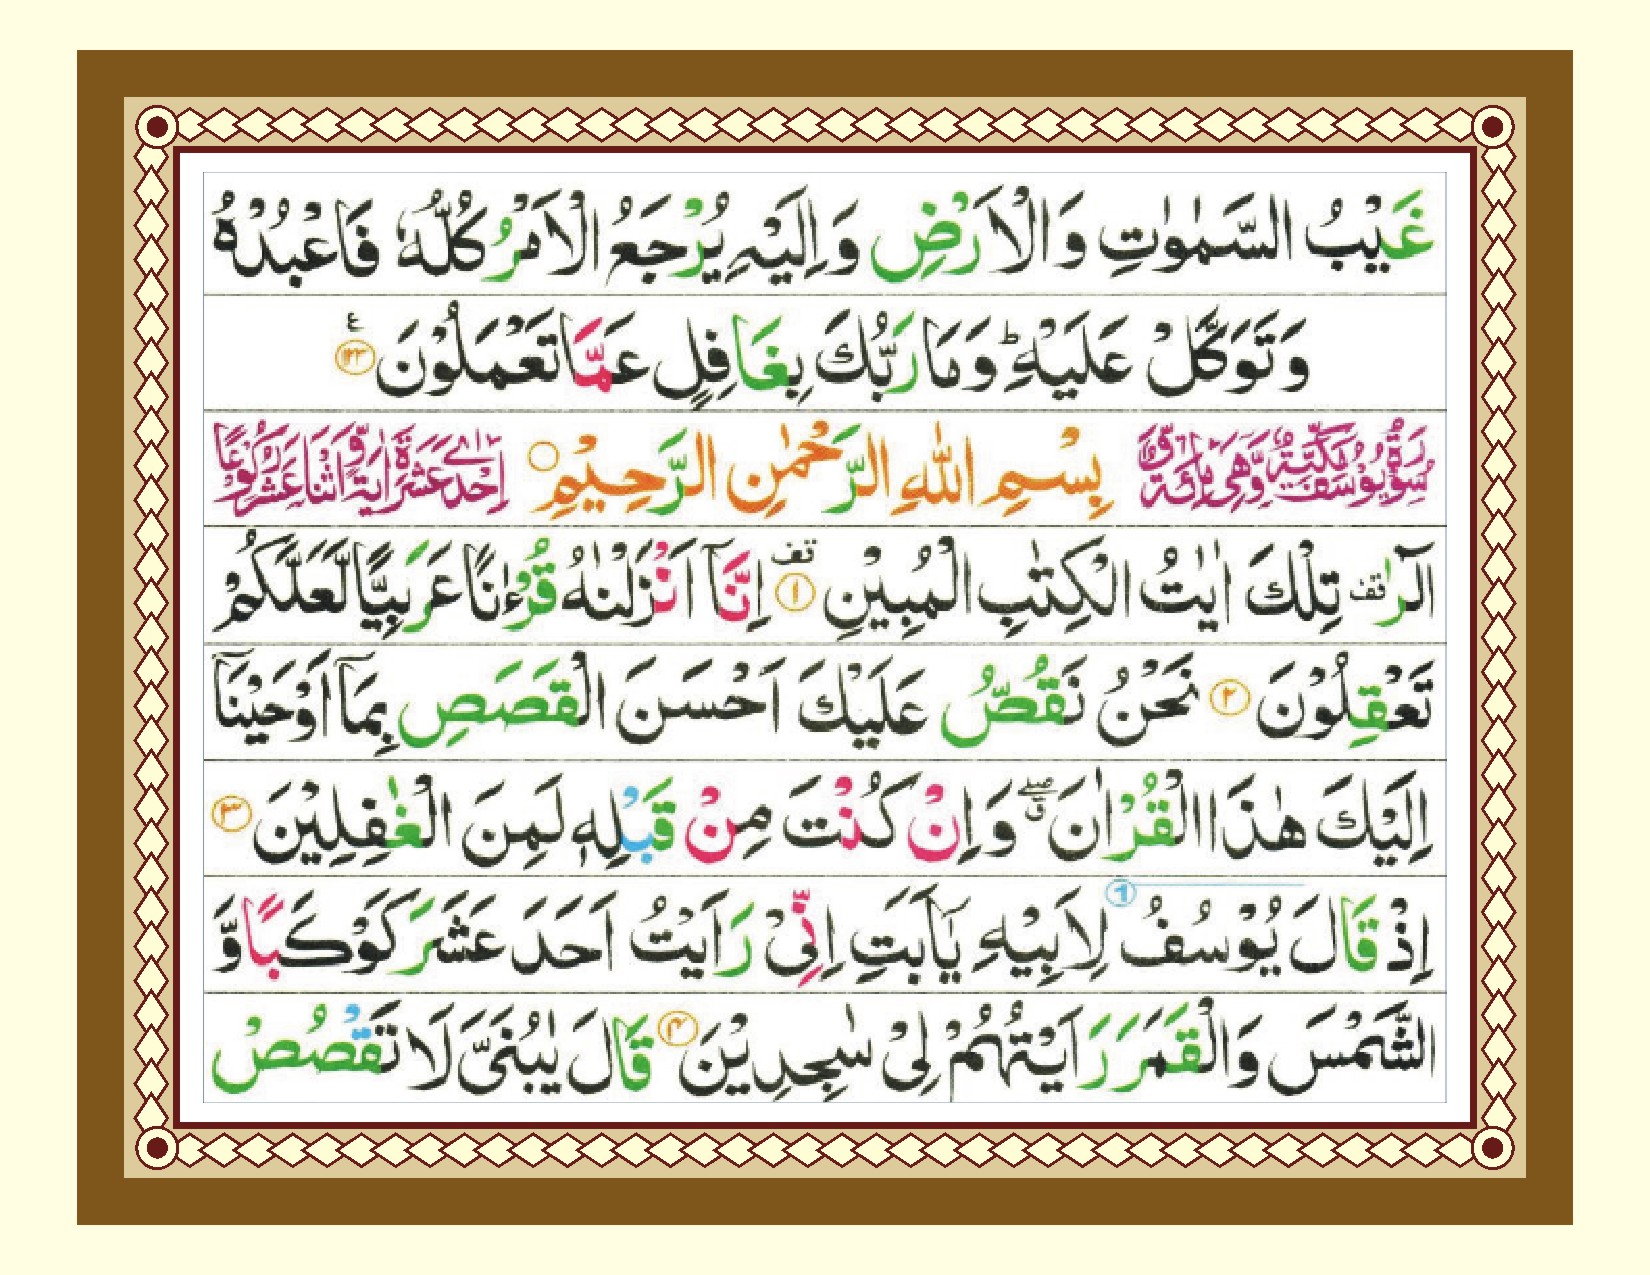 غَيْبُ السَّمٰوٰتِ وَالْاَرْضِ وَاِلَيْهِ يُرْجَعُ الْاَمْرُ كُلُّهٗ فَاعْبُدْهُ
وَتَوَكَّلْ عَلَيْهِ ؕ وَمَا رَبُّكَ بِغَافِلٍ عَمَّا تَعْمَلُوْنَ ﴿۱۲۳﴾ ع
سُوْرَةُ يُوْسُفَ مَكِّيَّةٌ وَّهِىَ مِائَةٌ وَّ بِسْمِ اللّٰهِ الرَّحْمٰنِ الرَّحِيْمِ ○ اِحْدٰى عَشَرَةَ اٰيَةً وَّاثْنَا عَشَرَ رُكُوْعًا
الٓرٰ ۟ تِلْكَ اٰيٰتُ الْكِتٰبِ الْمُبِيْنِ ﴿۱﴾ قف اِنَّآ اَنْزَلْنٰهُ قُرْءٰنًا عَرَبِيًّا لَّعَلَّكُمْ
تَعْقِلُوْنَ ﴿۲﴾ نَحْنُ نَقُصُّ عَلَيْكَ اَحْسَنَ الْقَصَصِ بِمَآ اَوْحَيْنَآ
اِلَيْكَ هٰذَا الْقُرْاٰنَ ۖق وَاِنْ كُنْتَ مِنْ قَبْلِهٖ لَمِنَ الْغٰفِلِيْنَ ﴿۳﴾
اِذْ قَالَ يُوْسُفُ لِاَبِيْهِ يٰٓاَبَتِ اِنِّىْ رَاَيْتُ اَحَدَ عَشَرَ كَوْكَبًا وَّ
الشَّمْسَ وَالْقَمَرَ رَاَيْتُهُمْ لِىْ سٰجِدِيْنَ ﴿۴﴾ قَالَ يٰبُنَىَّ لَا تَقْصُصْ